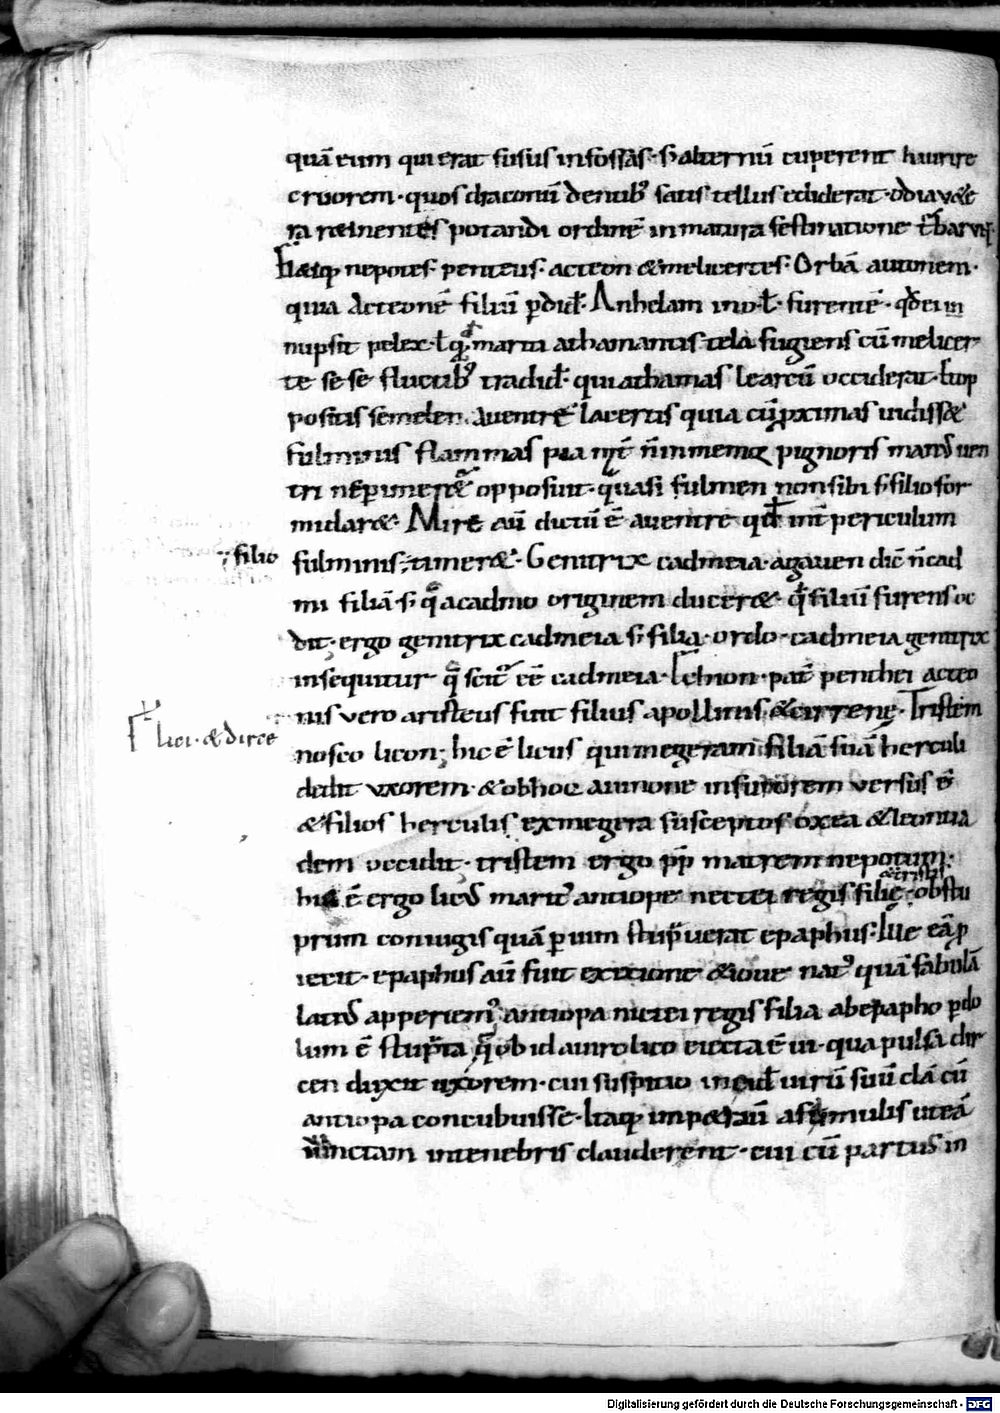 quā eum qui erat fusus in fossas· s; alternū cuperent haurire
cruorem· quos draconū dentib; satis tellus ediderat· odia u&e
ra r&inentes potandi ordinē inmatura festinatione
nepotes· penteus· acteon &melicertes· Orbā autonem·
quia Acteonē filiū pdid· Anhelam ino· ł· furentē· qd ei in
nupsit pelex· ł marti athamantis tela fugiens cū melicer
te se se fluctib; tradid· qui athamas learcū occiderat·
positis semelen· auentrē lacertis quia cū pximas uidiss&
fulminis flammas pia pignoris manus uen
tri opposuit· quasi fulmen non sibi s; filio for
midar&· Mire aū dictū ē auentre periculum
filio
fulminis; timer&· Genitrix cadmeia· agauen dic̄ n̄ cad
mi filiā· s; q̄ acadmo originem ducer&· filiū furens oc
dit· ergo genitrix cadmeia s; filia· ordo· cadmeia genitrix
insequitur· ēē cadmeia· Echion· pat̄ penthei acteo
nis vero aristeus fuit filius apollinis &cirrenę· Tristem
lici· &dirce
nosco licon; hic ē licus qui megeram filiā suā herculi
dedit uxorem· &obhoc aiunone in furorem versus ē
&filios herculis exmegera susceptos oxea &leontia
dem occidit· tristem ergo pp matrem nepotum·
hic ē ergo licus marit; antiope nectei regis filię· obstu
prum coniugis quā p uim stupuerat epaphus·
iecit· epaphus aū fuit exixione &ioue nat; quā fabulā
latius apperiem; antiopa nictei regis filia abepapho p do
lum ē stupta q̄ ob id auiro lico eiecta ē ui· qua pulsa dir
cen duxit uxorem· cui suspitio incid uirū suū clā cū
antiopa concubuisse· Itaq; famulis ut eā
uinctam intenebris clauderent· cui cū partus in
Digitalisierung gefördert durch die Deutsche Forschungsgemeinschaft - DFG